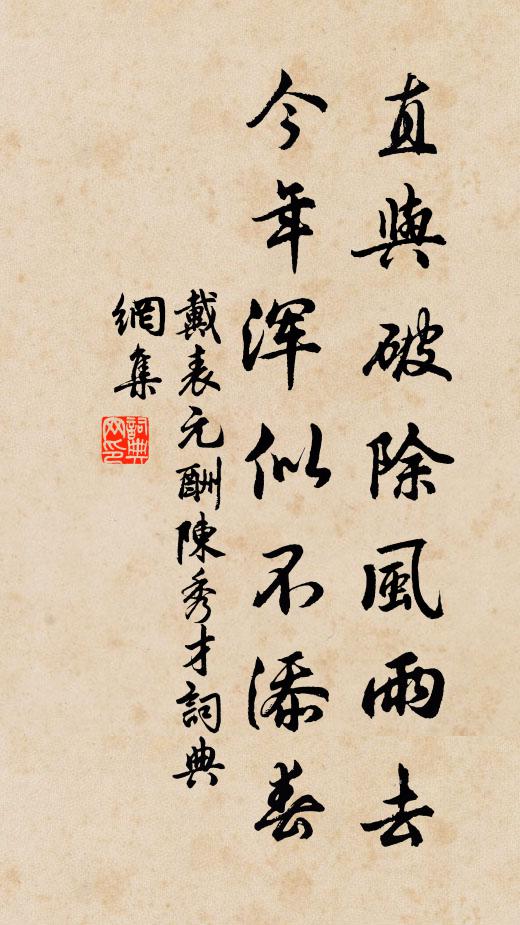 直與破除風雨去
今年渾似不添春
戴表元酬陳秀才詞典
網集
詞典網印